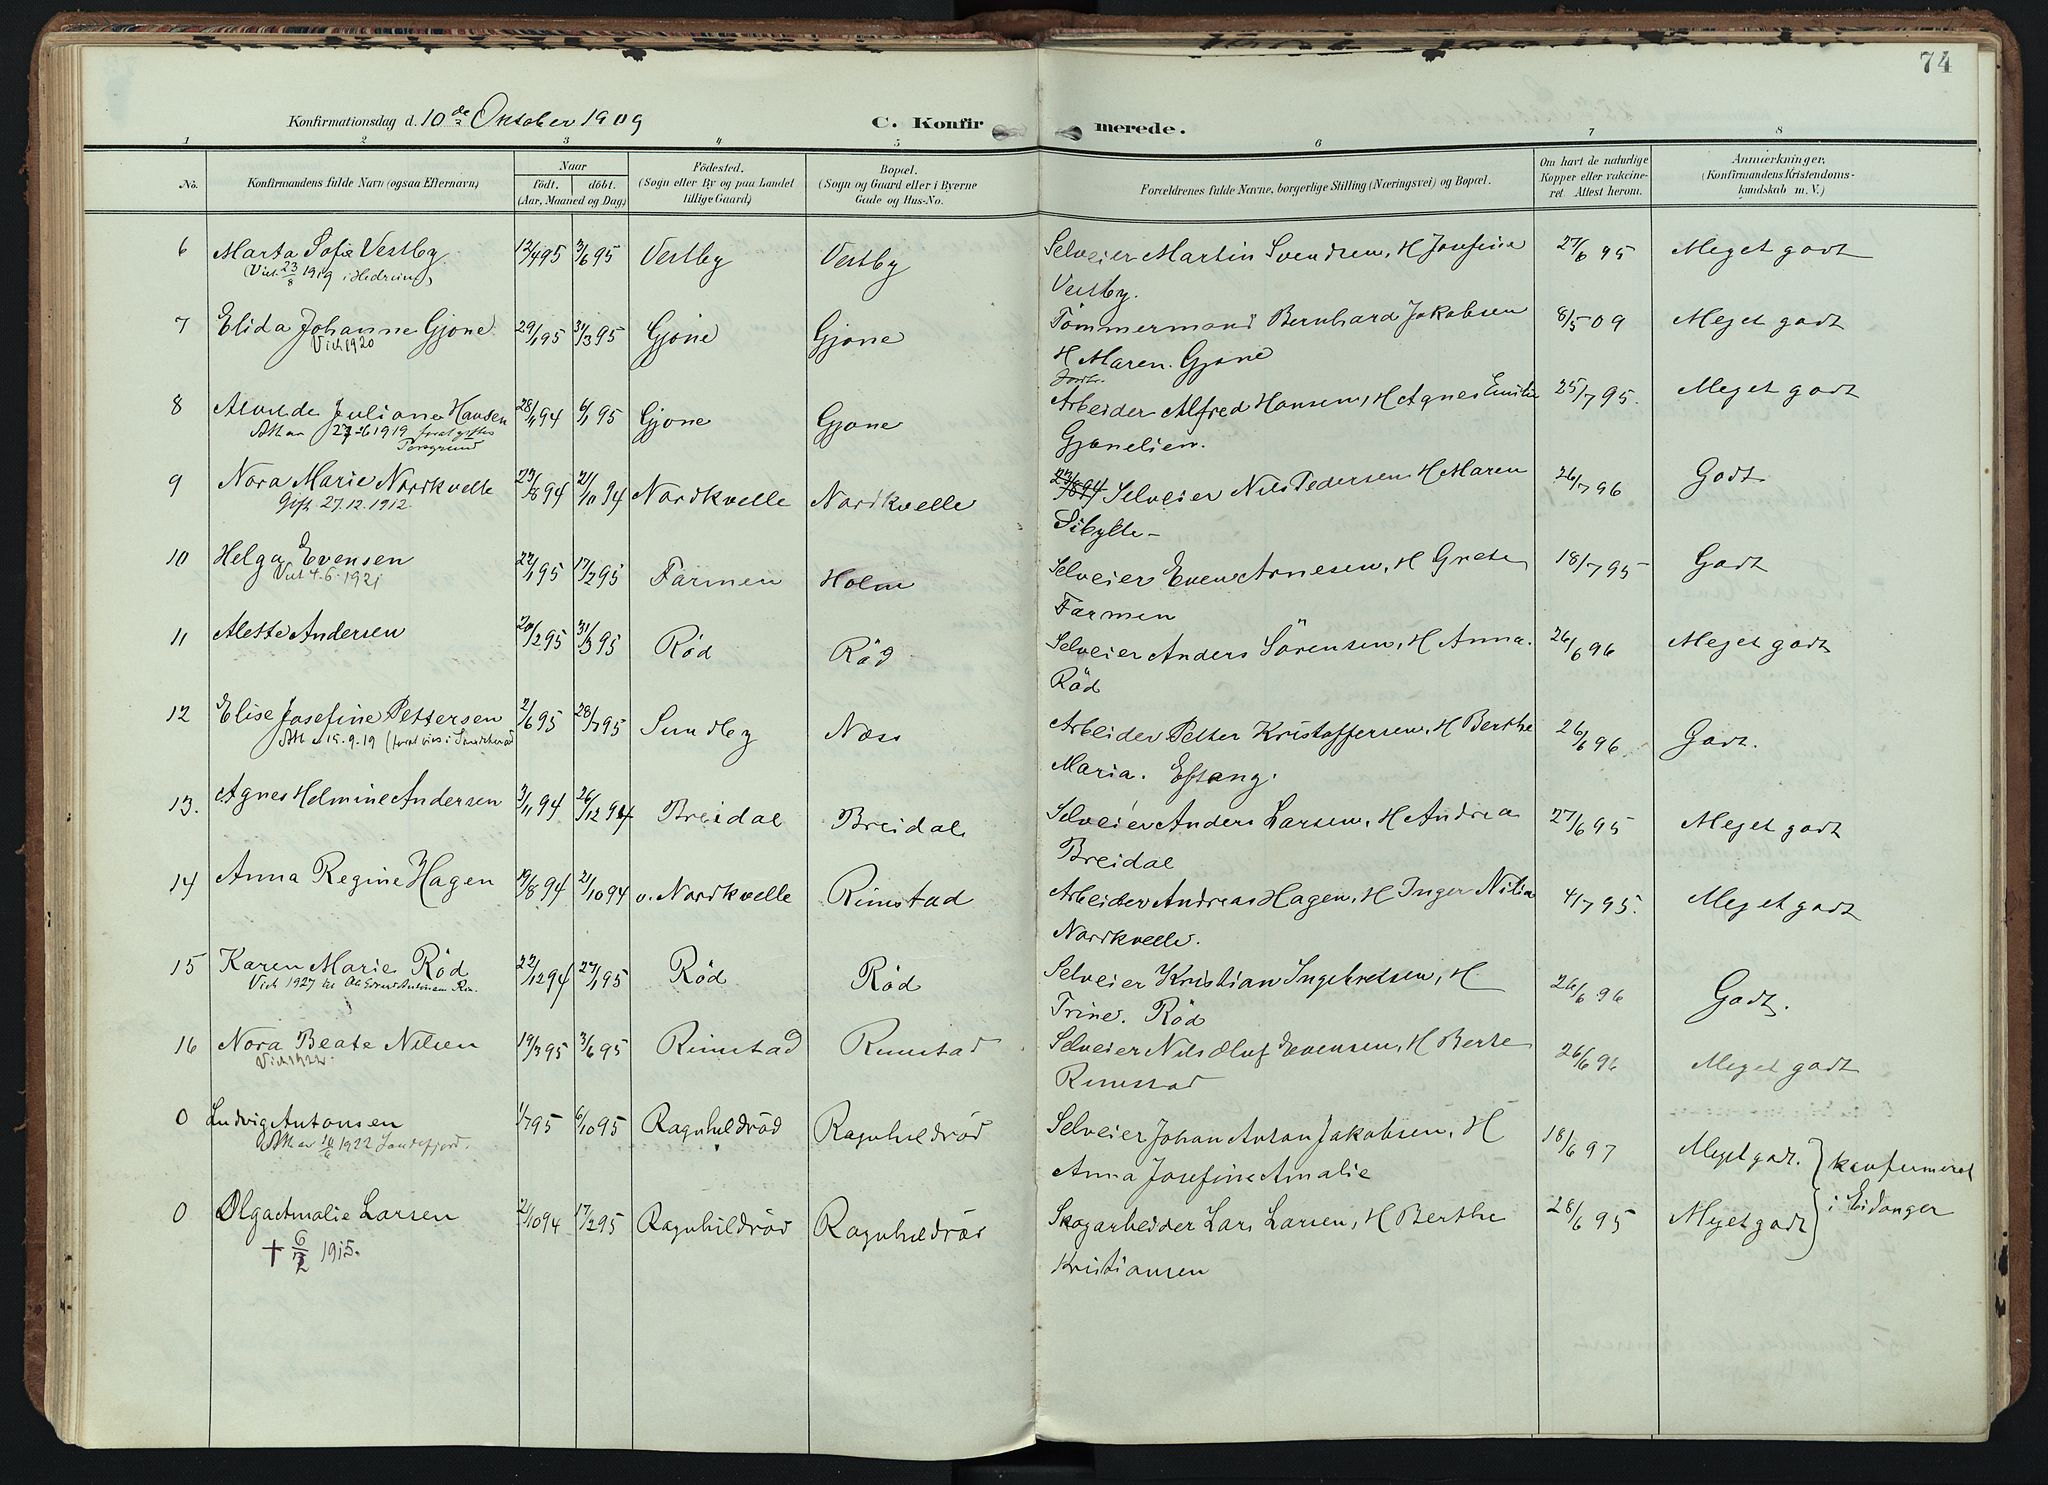 74
Konfirmationsdag d. 10de Oktober 1909
C. Konfirmerede.
1 2 3 4 5 6 7 8
No. Konfirmandens fulde Navn (ogsaa Efternavn)
Naar födt. döbt. (Aar, Maaned og Dag)
Födested. (Sogn eller By og paa Landet tillige Gaard)
Bopæl. (Sogn og Gaard eller i Byerne Gade og Hus-No.
Forældrenes fulde Navne, borgerlige Stilling (Næringsvei) og Bopæl.
Om havt de naturlige Kopper eller vakcineret. Attest herom.
Anmærkninger, (Konfirmandens Kristendomskundskab m. V.)
6 Marta Sofie Vestby 12/4 95 3/6 95 Vestby Vestby Selveier Martin Svendsen, H Josefine 27/6 95 Meget godt
(Viet 23/8 1919 i Hedrum) Vestby.
7 Elida Johanne Gjone 29/1 95 31/3 95 Gjöne Gjone Tömmermand Bernhard Jakobsen 8/5 09 Meget godt
Viet 1920 H Maren. Gjone
8 Juliane Hansen 28/11 94 6/1 95 Gjone Gjone Arbeider Alfred Hansen, H Agnes Emilie 25/7 95. Meget godt
1919 Gjonelien.
Porsgrund
9 Nora Marie Nordkvelle 23/8 94 21/10 94 Nordkvelle Nordkvelle 23/8 94 Selveier Nils Pedersen H Maren 26/7 96 Godt
Gift 27.12.1912 Sibylle-
10 Helga Evensen 22/1 95 17/2 95 Farmen Holm Selveier Even Arnesen, H Grete 18/7 95 Godt
Viet 4.6.1921 Farmen
11 Alette Andersen 20/2 95 31/3 95 Röd Röd Selveier Anders Sörensen, H Anna. 26/6 96 Meget godt
Röd
12 Elise Josefine Pettersen 2/6 95 28/7 95 Sundby Næss Arbeider Petter Kristoffersen, H Berthe 26/6 96. Godt.
15.9.19 Maria. Eftang.
13. Agnes Helmine Andersen 3/11 94 26/12 94 Breidal Breidal Selveier Anders Larsen, H Andrea 27/6 95 Meget godt
Breidal
14 Anna Regine Hagen 19/8 94 21/10 94 v. Nordkvelle Rimstad Arbeider Andreas Hagen, H Inger Nilia 4/7 95. Meget godt
Nordkvelle.
15 Karen Marie Röd 22/12 94 27/1 95 Röd Röd Selveier Kristian Ingebretsen, H 26/6 96 Godt.
Viet 1927 Trine. Röd
16 Nora Beate Nilsen 19/3 95 3/6 95 Rimstad Rimstad Selveier Nils Oluf Evensen, H Berte 26/6 96 Meget godt
Viet 1922 Rimstad
0 Ludvig Antonsen 1/7 95 6/10 95 Ragnhildröd Ragnhildröd Selveier Johan Anton Jakobsen, H 18/6 97 Meget godt. konfirmeret
1922 Sandefjord. Anna Josefine Amalie
0 Olga Amalie Larsen 2/10 94 17/2 95 Ragnhildröd Ragnhildröd Skogarbeider Lars Larsen, H Berthe 28/6 95 Meget godt i Eidanger
+ 6/12 1915. Kristiansen